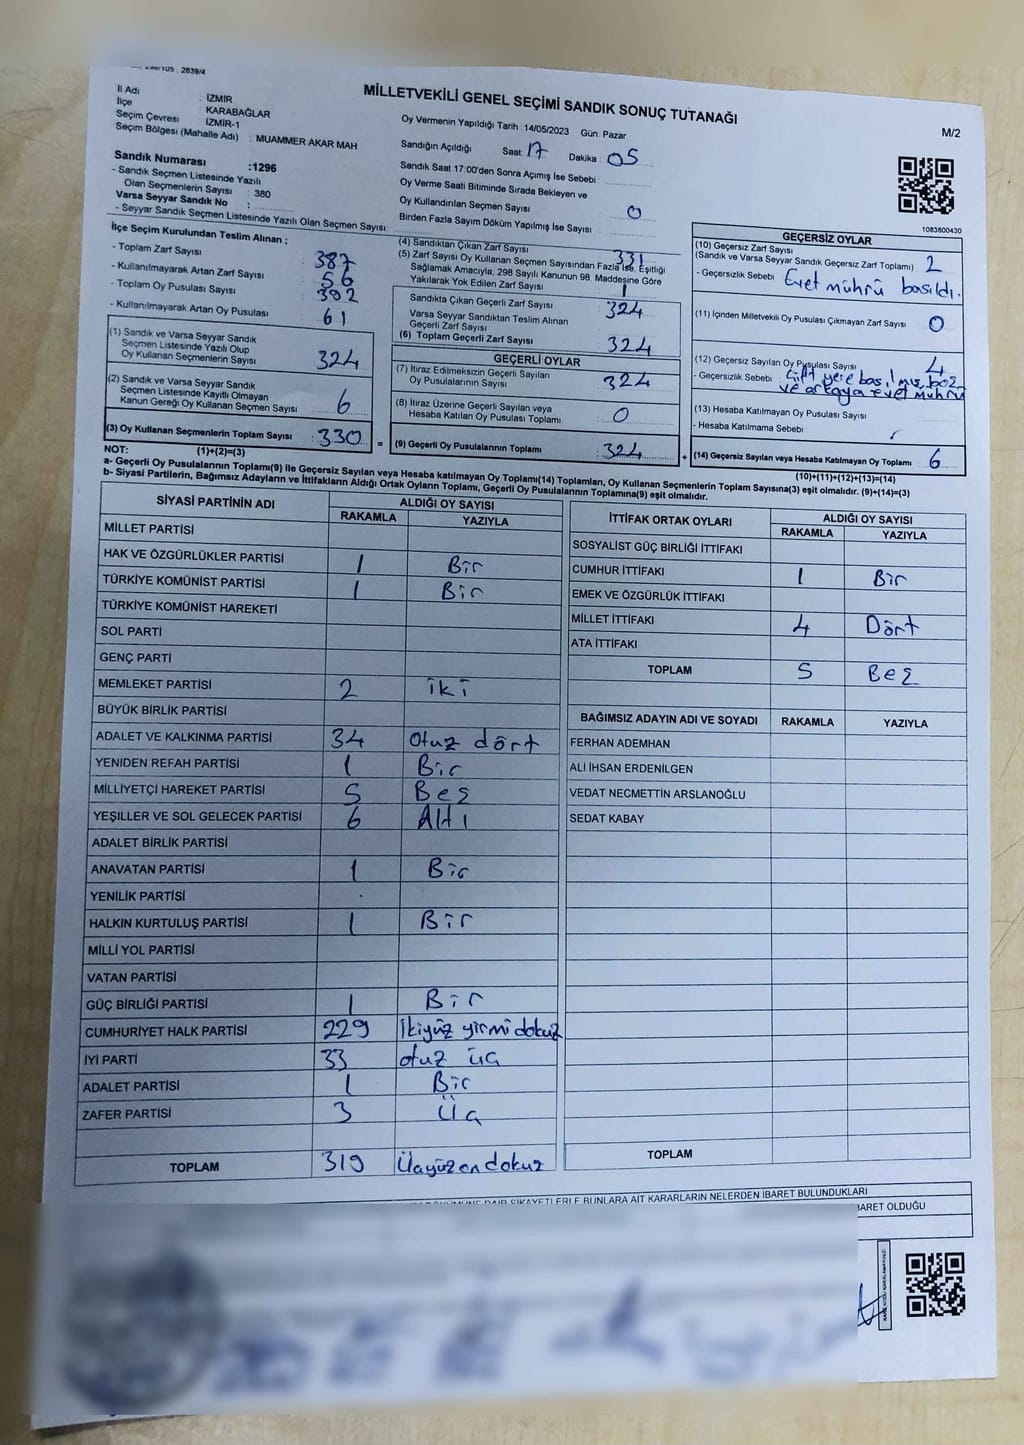 2839/4
İl Adı : İZMİR
İlçe : KARABAĞLAR
Seçim Çevresi : İZMİR-1
Seçim Bölgesi (Mahalle Adı) : MUAMMER AKAR MAH
Sandık Numarası :1296
- Sandık Seçmen Listesinde Yazılı
Olan Seçmenlerin Sayısı : 380
Varsa Seyyar Sandık No :
- Seyyar Sandık Seçmen Listesinde Yazılı Olan Seçmen Sayısı:
MİLLETVEKİLİ GENEL SEÇİMİ SANDIK SONUÇ TUTANAĞI
M/2
Oy Vermenin Yapıldığı Tarih : 14/05/2023 Gün: Pazar
Sandığın Açıldığı Saat: 17 Dakika : 05
Sandık Saat 17:00'den Sonra Açımış İse Sebebi :
Oy Verme Saati Bitiminde Sırada Bekleyen ve
Oy Kullandırılan Seçmen Sayısı 0
Birden Fazla Sayım Döküm Yapılmış İse Sayısı :
1083800430
İlçe Seçim Kurulundan Teslim Alınan ;
- Toplam Zarf Sayısı 387
- Kullanılmayarak Artan Zarf Sayısı : 56
- Toplam Oy Pusulası Sayısı 392
- Kullanılmayarak Artan Oy Pusulası 61
(1) Sandık ve Varsa Seyyar Sandık
Seçmen Listesinde Yazılı Olup
Oy Kullanan Seçmenlerin Sayısı 324
(2) Sandık ve Varsa Seyyar Sandık
Seçmen Listesinde Kayıtlı Olmayan
Kanun Gereği Oy Kullanan Seçmen Sayısı 6
(3) Oy Kullanan Seçmenlerin Toplam Sayısı : 330 =
(1)+(2)=(3)
(4) Sandıktan Çıkan Zarf Sayısı 331
(5) Zarf Sayısı Oy Kullanan Seçmen Sayısından Fazla İse, Eşitliği
Sağlamak Amacıyla, 298 Sayılı Kanunun 98. Maddesine Göre
Yakılarak Yok Edilen Zarf Sayısı 1
Sandıkta Çıkan Geçerli Zarf Sayısı : 324
Varsa Seyyar Sandıktan Teslim Alınan
Geçerli Zarf Sayısı
(6) Toplam Geçerli Zarf Sayısı 324
GEÇERLİ OYLAR
(7) İtiraz Edilmeksizin Geçerli Sayılan
Oy Pusulalarının Sayısı 324
(8) İtiraz Üzerine Geçerli Sayılan veya
Hesaba Katılan Oy Pusulası Toplamı 0
(9) Geçerli Oy Pusulalarının Toplamı : 324 +
GEÇERSİZ OYLAR
(10) Geçersiz Zarf Sayısı
(Sandık ve Varsa Seyyar Sandık Geçersiz Zarf Toplamı) 2
- Geçersizlik Sebebi Evet mührü basıldı.
(11) İçinden Milletvekili Oy Pusulası Çıkmayan Zarf Sayısı 0
(12) Geçersiz Sayılan Oy Pusulası Sayısı 4
- Geçersizlik Sebebi Çift yere basılmış,
ve arkaya evet mührü
(13) Hesaba Katılmayan Oy Pusulası Sayısı
- Hesaba Katılmama Sebebi
(14) Geçersiz Sayılan veya Hesaba Katılmayan Oy Toplamı : 6
(10)+(11)+(12)+(13)=(14)
NOT:
a- Geçerli Oy Pusulalarının Toplamı(9) ile Geçersiz Sayılan veya Hesaba katılmayan Oy Toplamı(14) Toplamları, Oy Kullanan Seçmenlerin Toplam Sayısına(3) eşit olmalıdır. (9)+(14)=(3)
b- Siyasi Partilerin, Bağımsız Adayların ve İttifakların Aldığı Ortak Oyların Toplamı, Geçerli Oy Pusulalarının Toplamına(9) eşit olmalıdır.
SİYASİ PARTİNİN ADI ALDIĞI OY SAYISI
RAKAMLA YAZIYLA
MİLLET PARTİSİ
HAK VE ÖZGÜRLÜKLER PARTİSİ 1 Bir
TÜRKİYE KOMÜNİST PARTİSİ 1 Bir
TÜRKİYE KOMÜNİST HAREKETİ
SOL PARTİ
GENÇ PARTİ
MEMLEKET PARTİSİ 2 iki
BÜYÜK BİRLİK PARTİSİ
ADALET VE KALKINMA PARTİSİ 34 Otuz dört
YENİDEN REFAH PARTİSİ 1 Bir
MİLLİYETÇİ HAREKET PARTİSİ 5 Beş
YEŞİLLER VE SOL GELECEK PARTİSİ 6 Altı
ADALET BİRLİK PARTİSİ
ANAVATAN PARTİSİ 1 Bir
YENİLİK PARTİSİ
HALKIN KURTULUŞ PARTİSİ 1 Bir
MİLLİ YOL PARTİSİ
VATAN PARTİSİ
GÜÇ BİRLİĞİ PARTİSİ 1 Bir
CUMHURİYET HALK PARTİSİ 229 ikiyüz yirmi dokuz
İYİ PARTİ 33 otuz üç
ADALET PARTİSİ 1 Bir
ZAFER PARTİSİ 3 Üç
TOPLAM 319 Üçyüz on dokuz
İTTİFAK ORTAK OYLARI ALDIĞI OY SAYISI
RAKAMLA YAZIYLA
SOSYALİST GÜÇ BİRLİĞİ İTTİFAKI
CUMHUR İTTİFAKI 1 Bir
EMEK VE ÖZGÜRLÜK İTTİFAKI
MİLLET İTTİFAKI 4 Dört
ATA İTTİFAKI
TOPLAM 5 Beş
BAĞIMSIZ ADAYIN ADI VE SOYADI RAKAMLA YAZIYLA
FERHAN ADEMHAN
ALİ İHSAN ERDENİLGEN
VEDAT NECMETTİN ARSLANOĞLU
SEDAT KABAY
TOPLAM
DÖKÜMÜNE DAİR ŞİKAYETLERLE BUNLARA AİT KARARLARIN NELERDEN İBARET BULUNDUKLARI
İBARET OLDUĞU